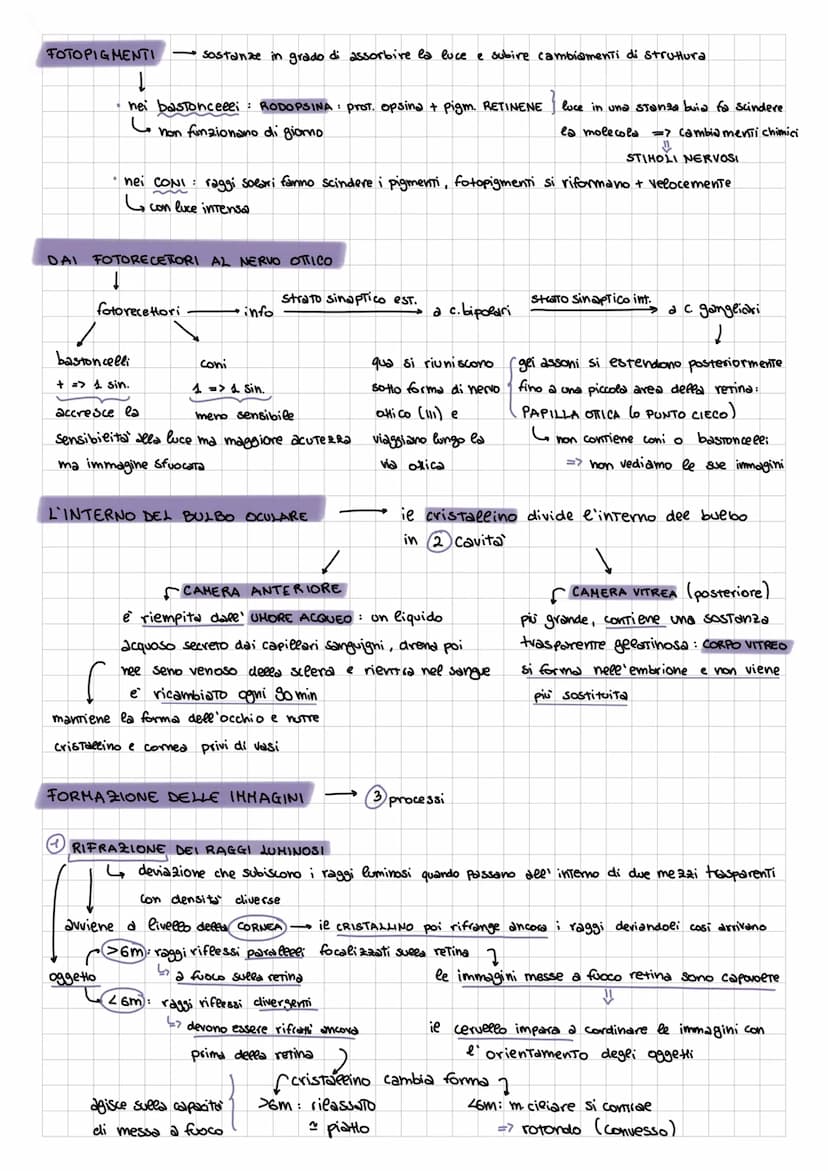 FOTOPIGMENTI → sostanze in grado di assorbire la luce e subire cambiamenti di struttura
• nei bastoncelli : RODOPSINA : prot. opsina + pigm. RETINENE } luce in una stanza buia fa scindere
↳ non funzionano di giorno la molecola => cambiamenti chimici
⇓
STIMOLI NERVOSI
• nei CONI : raggi solari fanno scindere i pigmenti, fotopigmenti si riformano + velocemente
↳ con luce intensa
DAI FOTORECETTORI AL NERVO OTTICO
fotorecettori → info strato sinaptico est. → a c. bipolari strato sinaptico int. → a c gangliari
bastoncelli
+ => 1 sin.
accresce la
sensibilità alla luce
ma immagine sfuocata
coni
1 => 1 sin.
meno sensibile
ma maggiore acutezza
qua si riuniscono
sotto forma di nervo
ottico (II) e
viaggiano lungo la
via ottica
gli assoni si estendono posteriormente
fino a una piccola area della retina:
PAPILLA OTTICA (o PUNTO CIECO)
↳ non contiene coni o bastoncelli
=> non vediamo le sue immagini
L'INTERNO DEL BULBO OCULARE → il cristallino divide l'interno del bulbo
in 2 cavità
CAMERA ANTERIORE
è riempita dall' UMORE ACQUEO : un liquido
acquoso secreto dai capillari sanguigni, drena poi
nel seno venoso della sclera e rientra nel sangue
è ricambiato ogni 90 min
mantiene la forma dell'occhio e nutre
cristallino e cornea privi di vasi
CAMERA VITREA (posteriore)
più grande, contiene una sostanza
trasparente gelatinosa : CORPO VITREO
si forma nell'embrione e non viene
più sostituita
FORMAZIONE DELLE IMMAGINI → 3 processi
1 RIFRAZIONE DEI RAGGI LUMINOSI
↳ deviazione che subiscono i raggi luminosi quando passano all' interno di due mezzi trasparenti
con densità diverse
avviene a livello della CORNEA → il CRISTALLINO poi rifrange ancora i raggi deviandoli così arrivano
>6m : raggi riflessi paralleli focalizzati sulla retina
oggetto ↳ a fuoco sulla retina le immagini messe a fuoco retina sono capovolte
<6m : raggi riflessi divergenti ⇓
↳ devono essere rifratti ancora il cervello impara a cordinare le immagini con
prima della retina l' orientamento degli oggetti
cristallino cambia forma
agisce sulla capacità >6m : rilassato <6m : m. ciliare si contrae
di messa a fuoco ≃ piatto => rotondo (convesso)